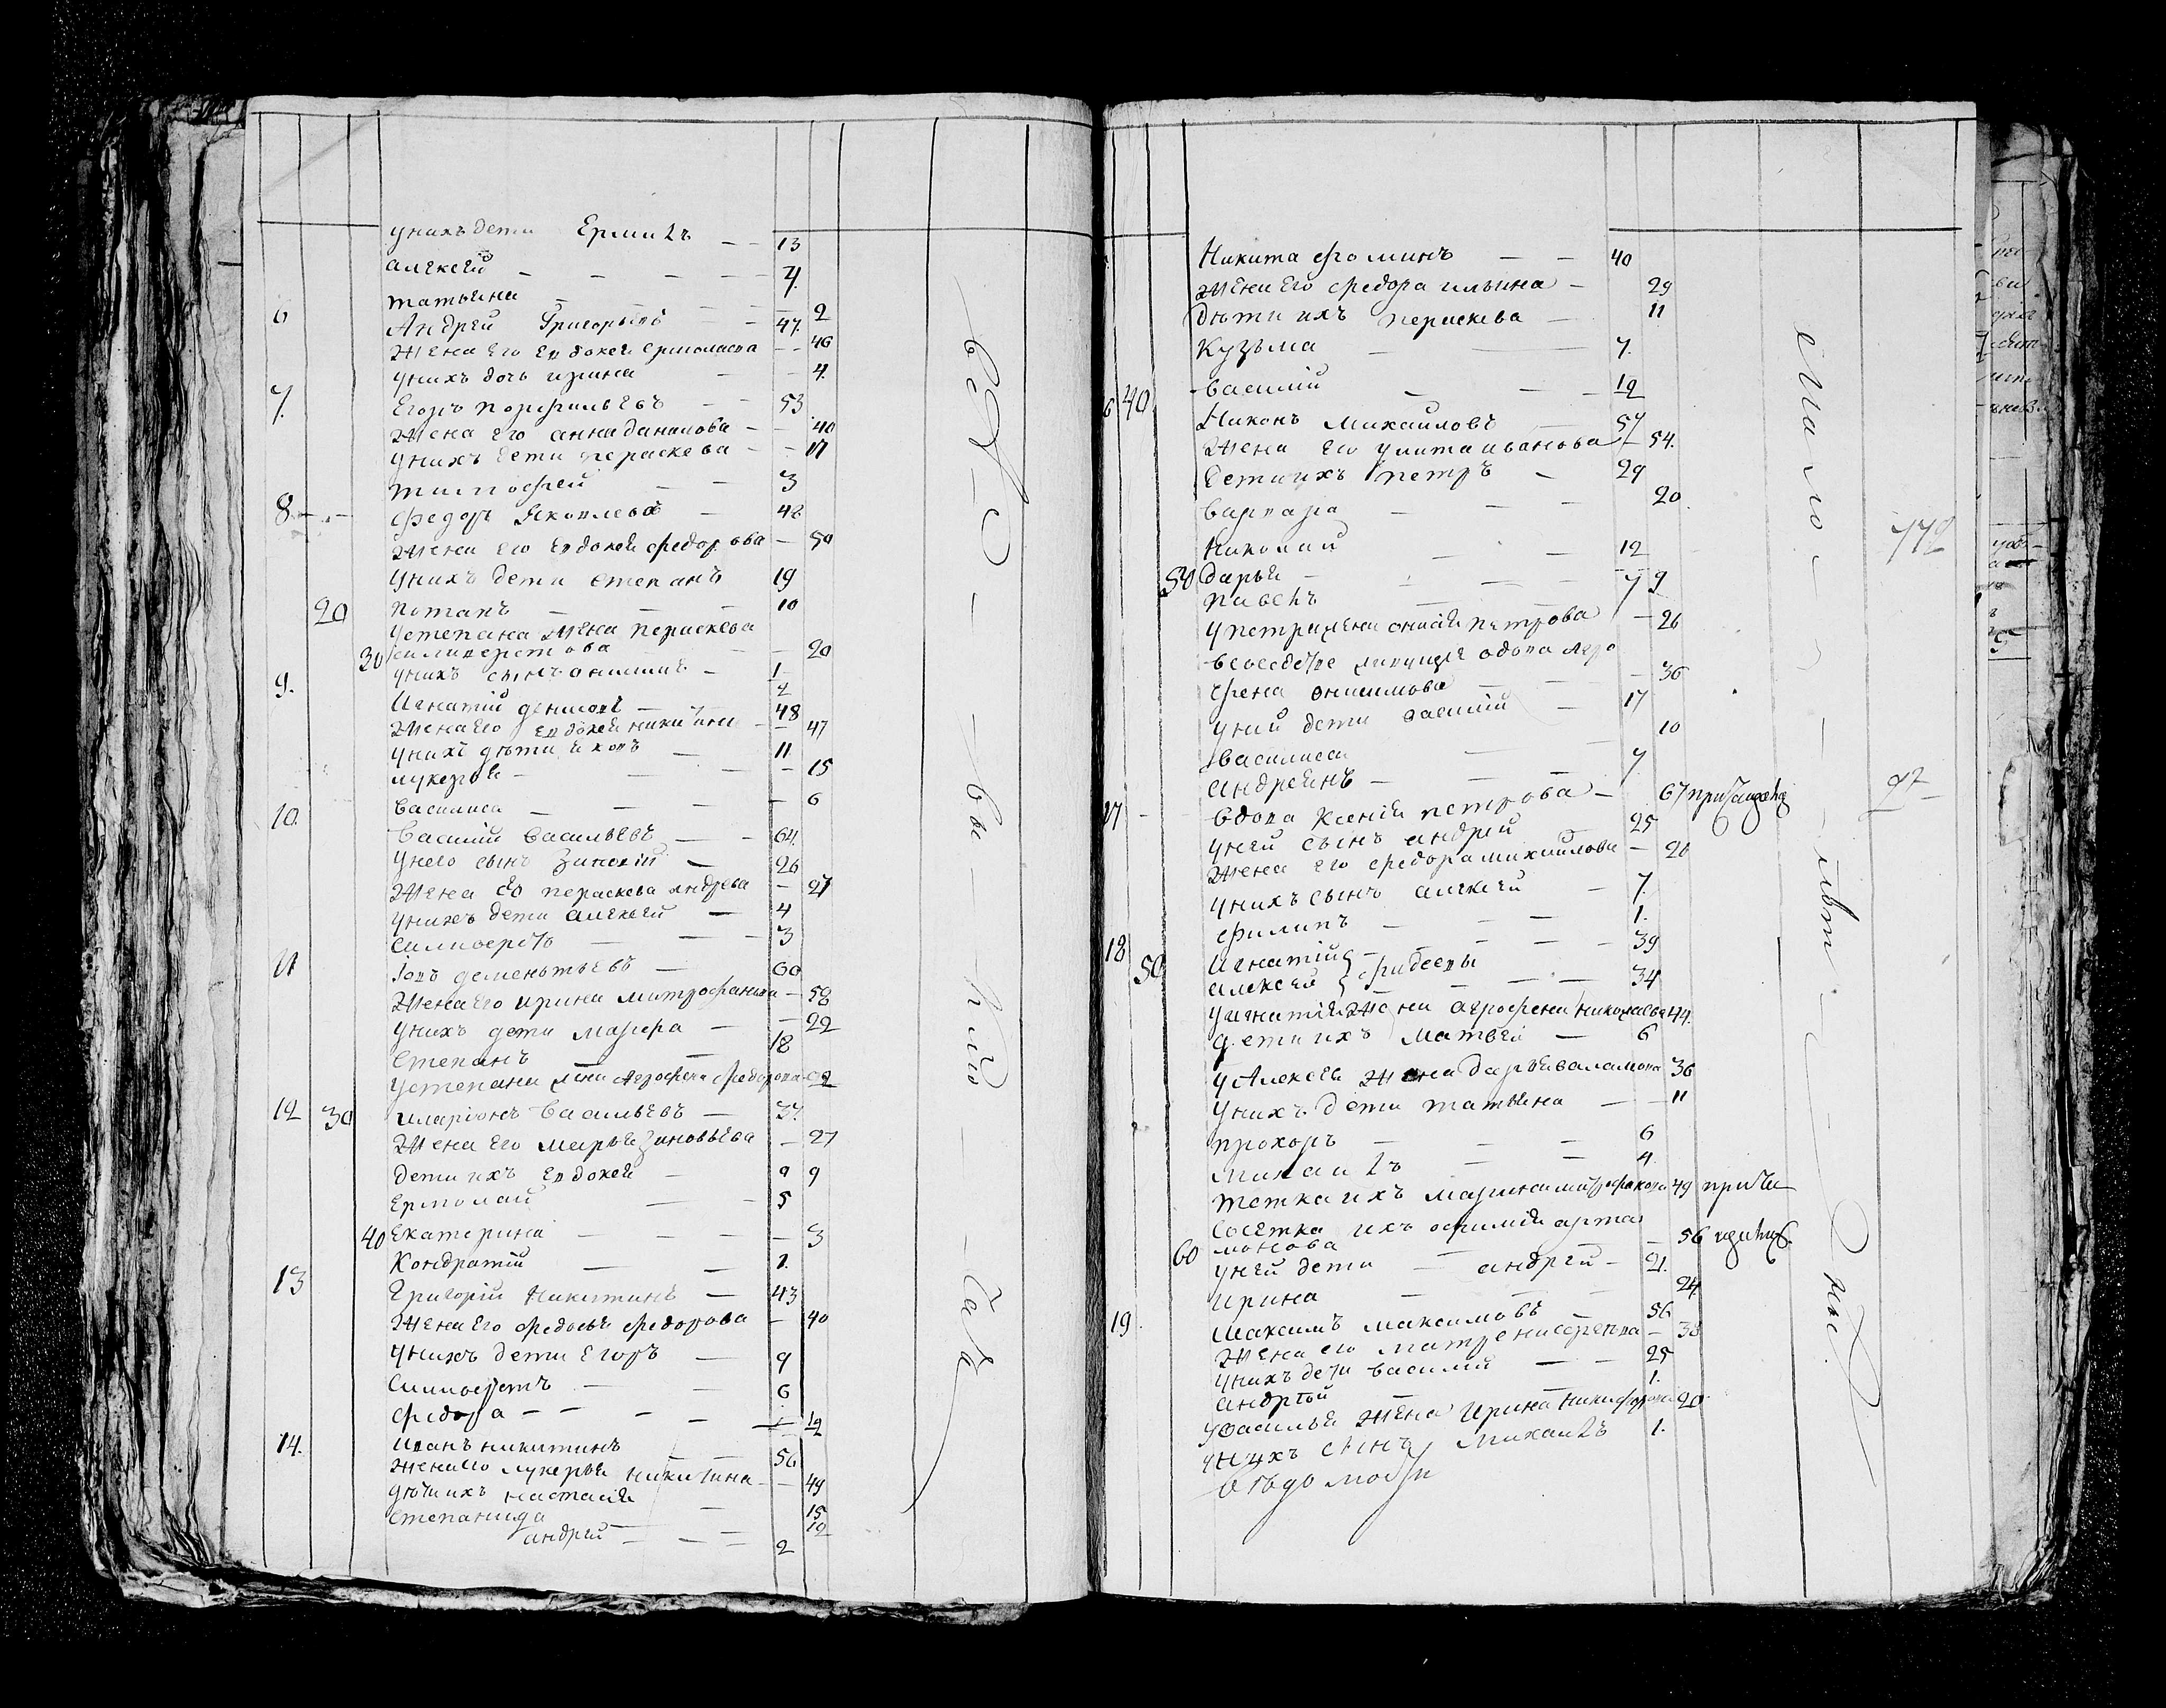 у нихъ дети Ермилъ — — 13
алексей — — — — 7.
татьяна — — — 2
6 Андрей Григорьевъ — — 47.
жена его евдокея ермолаева — — 46
у нихъ дочь ирина — — 4.
7. Егоръ порфильевъ — — 53
жена его анна данилова — — 40
у нихъ дети пераскева — — 17
тимофей — — 3
8. — Федоръ Яковлевъ — 48
жена его евдокея федорова — 50
у нихъ дети степанъ 19
20 потапъ — — — 10
у степана жена пераскева
30 силиверстова — — 20
у нихъ сынъ онисимъ — 1
9. Игнатий денисовъ — 48
жена его евдокея никитина — 47
у нихъ дети яковъ — 11
лукерья — — — — 15
василиса — — — — 6
10. Василий Васильевъ — — 64.
у него сынъ Зиновий — 26
жена его пераскева андреева — 27
у нихъ дети алексей — 4
силиверстъ — — — 3
11 Iовъ дементьевъ — 60
жена его ирина митрофанова — 58
у нихъ дети марфа — — 22
степанъ — — 18
у степана жена агрофена федорова 22
12 30 иларионъ Васильевъ — 37.
жена его марья зиновьева — 27
дети ихъ евдокея — 9
ермолай — — 5
40 Екатерина — — — — 3
Кондратий — — 1.
13 Григорий Никитинъ — 43
жена его федосья федорова — 40
у нихъ дети Егоръ — 9
силиверстъ — — 6
федора — — — — 12
14. Иванъ никитинъ — 56
жена его лукерья никитина — 49
дети ихъ настасия — 15
степанида — — 12
андрей — — — 2
Никита фоминъ — — 40
жена его федора ильина — 29
дети ихъ пераскева — 11
Кузьма — — 7.
василий — — 12
6 40 Никонъ михайловъ — 57
жена его улита иванова — 54.
дети ихъ петръ — 29
варвара — — — 20
николай — — 12
50 дарья — — — 9
павелъ — — 7
у петра жена петрова — 26
вдова агро
фена онисимова — — 36
у ней дети василий — 17
василиса — 10
андреянъ — — — 7
17 — вдова Ксения петрова — 67
у ней сынъ андрей 25
жена его федора михайлова — 20
у нихъ сынъ алексей — 7.
филипъ — — — 1.
18 Игнатий — — — 39
50 алексей — — — 34
у игнатия жена агрофена николаева 44.
дети ихъ матвей — 6
у Алексея жена дарья 36
у нихъ дети татьяна — — 11
прохоръ — — 6
михаилъ — — 4
тетка ихъ марина митрофанова 49
ихъ офимия арта
60 монова — 56
у ней дети — андрей — 21.
ирина — — — 24
19 максимъ максимовъ — 56
жена его матрена — 38
у нихъ дети василий — — 25
андрей — 1.
у василья жена Ирина никифорова 20
у нихъ сынъ Михаилъ 1.
мало
лет
ные
772
97